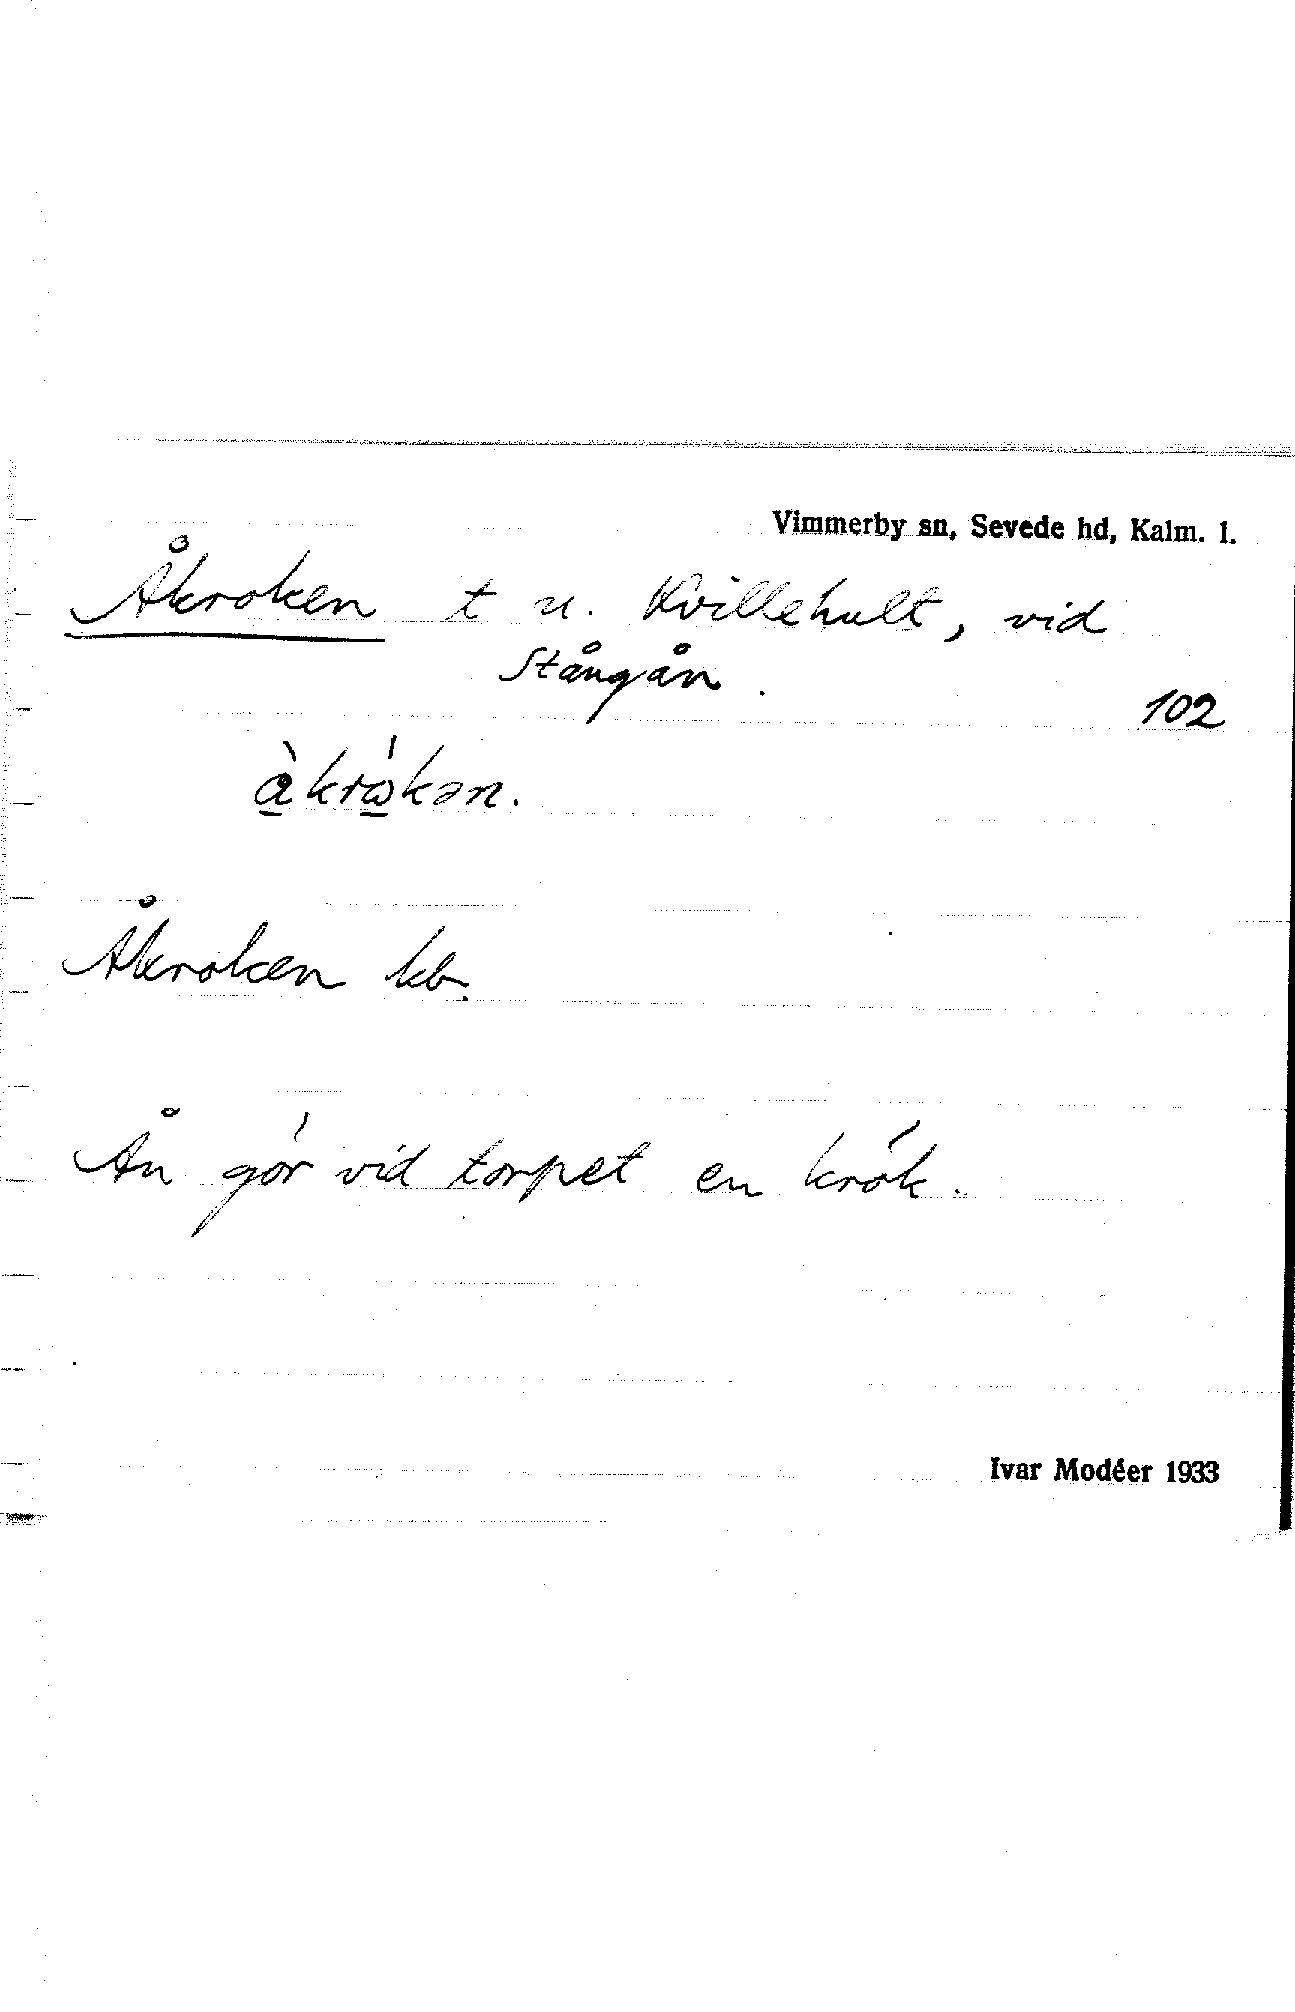 Vimmerby sn, Sevede hd, Kalm. l.
Åkroken t u. Kvillehult, vid
Stångån.
102
Åkroken kb.
Ån gör vid torpet en krok.
Ivar Modéer 1933